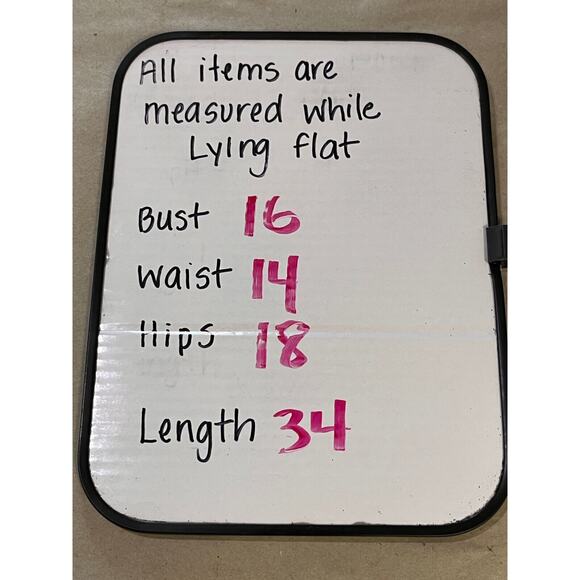 All items are
measured while
Lying flat
Bust 16
waist 14
Hips 18
Length 34